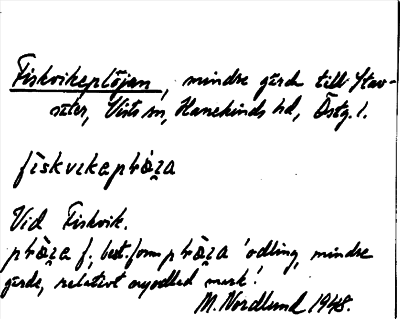 Fiskvikeplöjan, mindre gärde till Stav-
säter, Vists sn, Hanekinds hd, Östg. l.
Vid Fiskvik.
f, best. form 'odling, mindre
gärde, relativt nyodlad mark'.
M. Nordlund 1948.